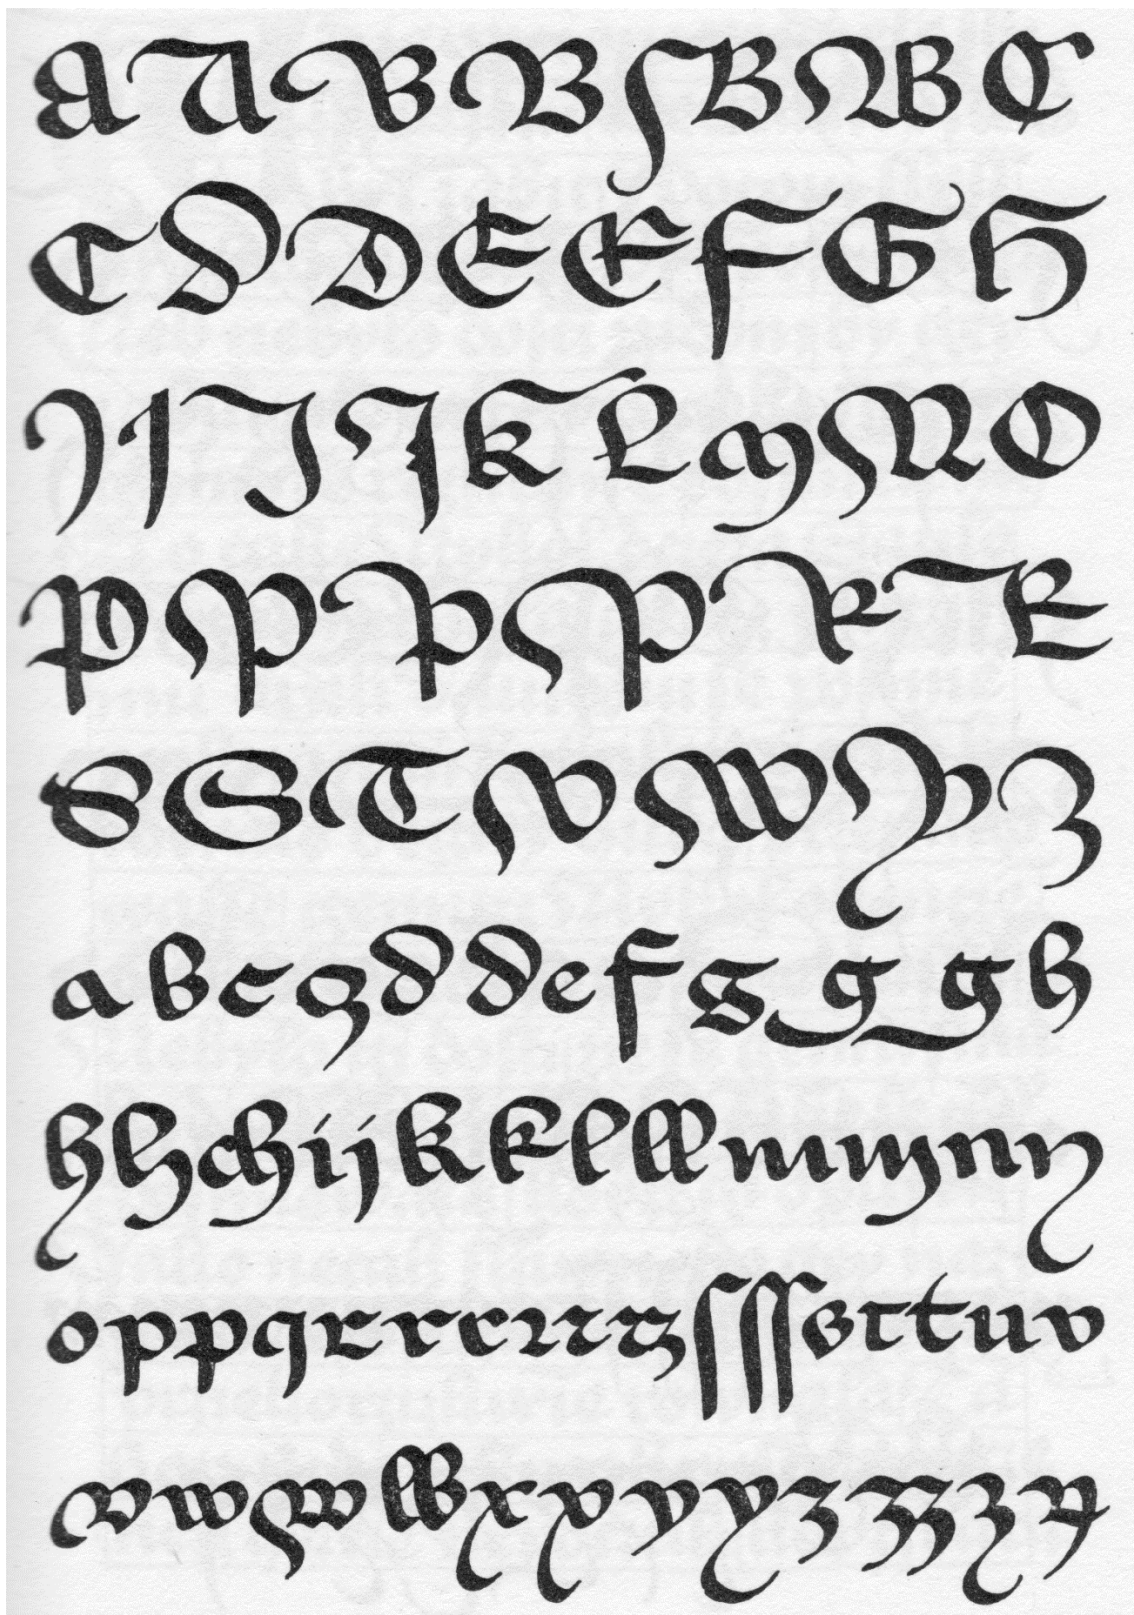 A A B B B B C
C D D E E F G H
I I J J K L M N O
P P P P R R
S S T V W Y Z
a b c g d d e f g g g h
h h ch i j k k l ll m m n n
o p p q r r r r r z ſ ſſ s t t u v
v w w w x x y y z z z z